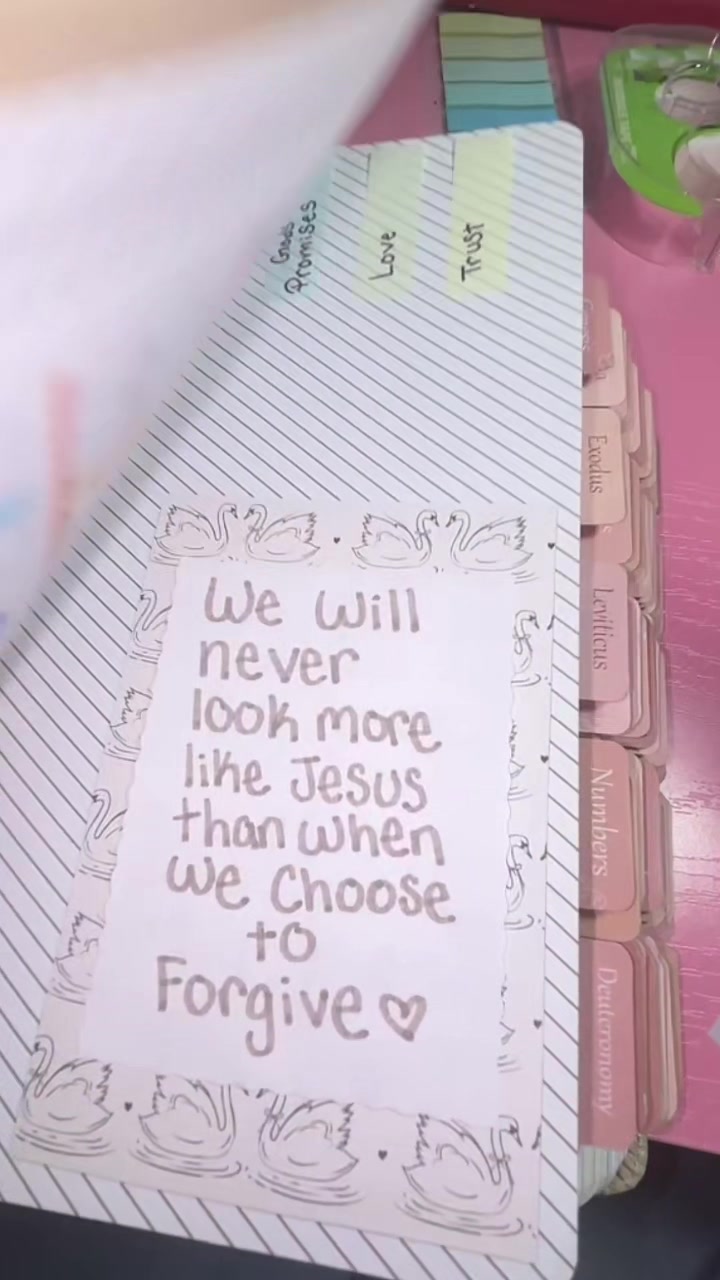 God's
Promises
Love
Trust
We will
never
look more
like Jesus
than when
we choose
to
Forgive
Exodus
Leviticus
Numbers
Deuteronomy